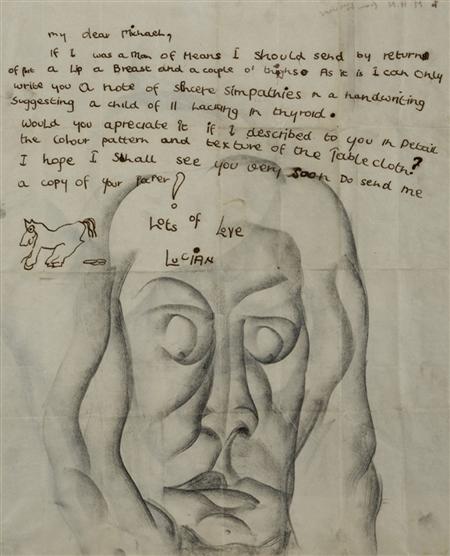 my dear Michael,
If I was a Man of Means I should send by return
of post a Lip a Breast and a couple o' thighs. As it is I can Only
write you a note of Sincere Simpathies in a handwriting
Suggesting a child of 11 Lacking in thyroid.
would you apreciate it if I described to you in Detail
the Colour pattern and texture of the Tablecloth?
I hope I Shall see you very Soon Do send me
a copy of your Paper?
Lots of Love
Lucian